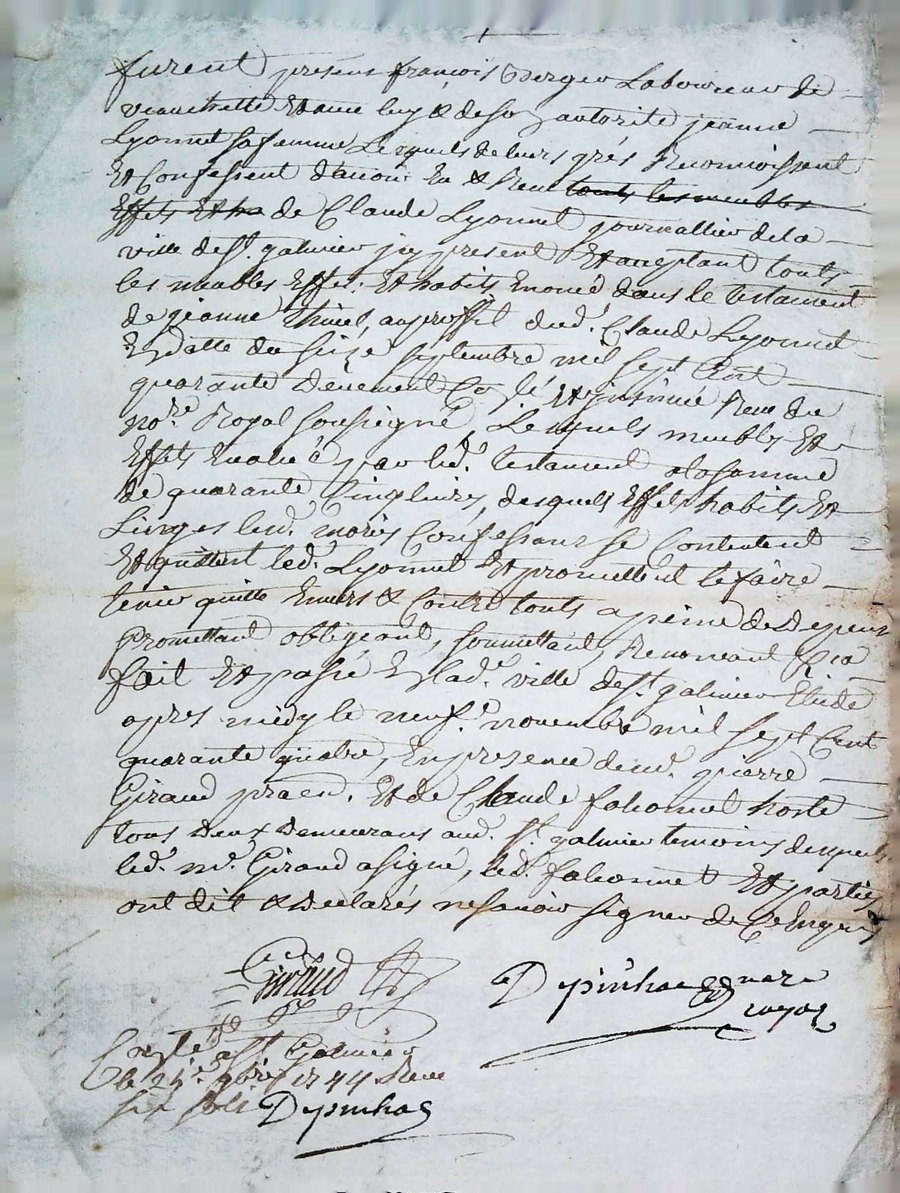 furent presens françois Verger Laboureur de
veauchette Et avec luy & de son autorité jeanne
Lyonnet sa femme Lesquels de leurs grés Reconnoissent
Et Confessent d'avoir Eu & Receu touts les meubles
Effets Et ha de Claude Lyonnet journallier de la
ville de St. galmier jcy present Et acceptant touts
les meubles Effet. Et habits Enoncé dans le testament
de jeanne thinet, au proffit dud. Claude Lyonnet
En datte du seize septembre mil sept Cent
quarante Deuement Con.lé Et jnsinué Receu du
no.re Royal soussigné, Lesquels meubles Et
Effets Evalué par led. testament a la somme
de quarante Cinq livres, desquels Effets habits Et
Linges lesd. mariés Confessans se Contentent
Et quittent led. Lyonnet Et promettent le faire
tenir quitte Envers & Contre touts a peine de Depens
promettant obligeant, soumettant, Renonceant &ca
fait Et passé En lad. ville de St. galmier Etude
apres midy le neuf.e novembre mil sept Cent
quarante quatre, En presence de me. pierre
Giraud pracn. Et de Claude fahonnet hoste
tous Deux Demeurans aud. St. galmier temoins desquels
led. me. Giraud a signé, led. fahonnet Et parties
ont dit & Declarés ne savoir signer de Ce Enquis
Giraud
Depinhac no.re
royal
Con.lé a St. Galmier
le 24e 9bre 1744 Receu
six sols Depinhac